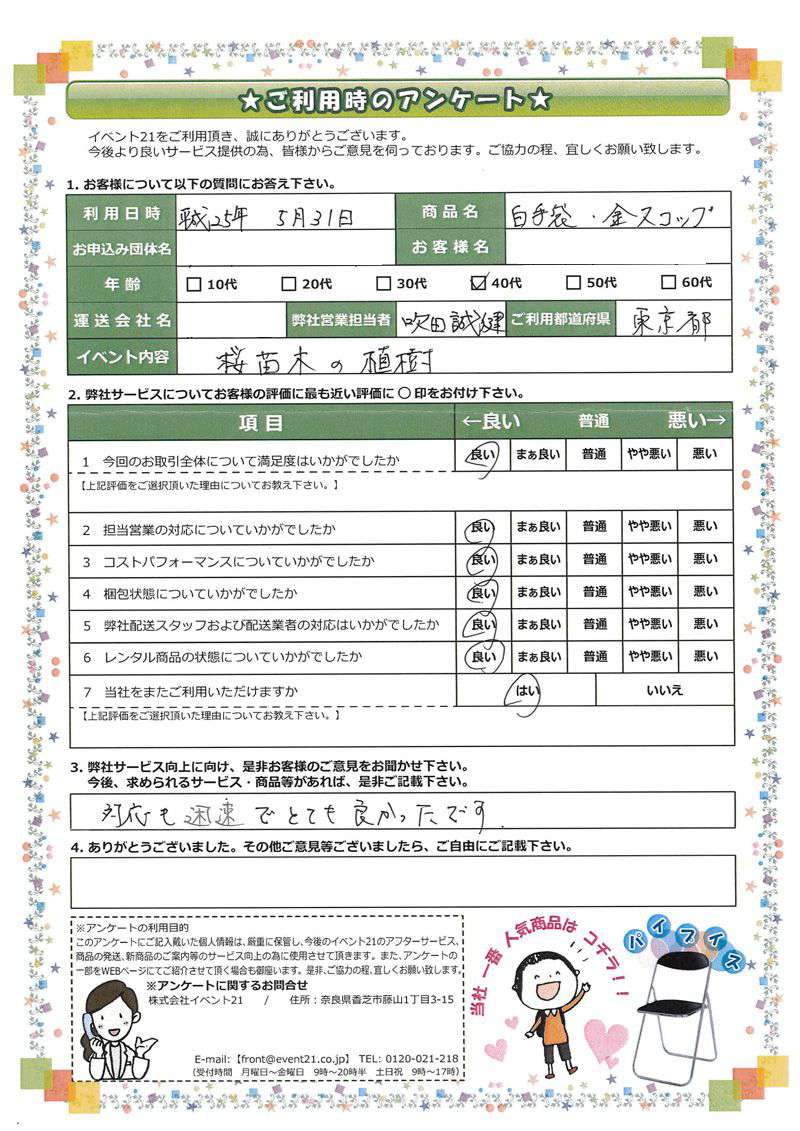 ★ご利用時のアンケート★
イベント21をご利用頂き、誠にありがとうございます。
今後より良いサービス提供の為、皆様からご意見を伺っております。ご協力の程、宜しくお願い致します。
1. お客様について以下の質問にお答え下さい。
利用日時 平成25年 5月31日 商品名 白手袋・金スコップ
お申込み団体名 お客様名
年齢 □10代 □20代 □30代 ☑40代 □50代 □60代
運送会社名 弊社営業担当者 吹田誠健 ご利用都道府県 東京都
イベント内容 桜苗木の植樹
2. 弊社サービスについてお客様の評価に最も近い評価に ○ 印をお付け下さい。
項目 ←良い 普通 悪い→
1 今回のお取引全体について満足度はいかがでしたか 良い まぁ良い 普通 やや悪い 悪い
【上記評価をご選択頂いた理由についてお教え下さい。】
2 担当営業の対応についていかがでしたか 良い まぁ良い 普通 やや悪い 悪い
3 コストパフォーマンスについていかがでしたか 良い まぁ良い 普通 やや悪い 悪い
4 梱包状態についていかがでしたか 良い まぁ良い 普通 やや悪い 悪い
5 弊社配送スタッフおよび配送業者の対応はいかがでしたか 良い まぁ良い 普通 やや悪い 悪い
6 レンタル商品の状態についていかがでしたか 良い まぁ良い 普通 やや悪い 悪い
7 当社をまたご利用いただけますか はい いいえ
【上記評価をご選択頂いた理由についてお教え下さい。】
3. 弊社サービス向上に向け、是非お客様のご意見をお聞かせ下さい。
今後、求められるサービス・商品等があれば、是非ご記載下さい。
対応も迅速でとても良かったです.
4. ありがとうございました。その他ご意見等ございましたら、ご自由にご記載下さい。
※アンケートの利用目的
このアンケートにご記入戴いた個人情報は、厳重に保管し、今後のイベント21のアフターサービス、
商品の発送、新商品のご案内等のサービス向上の為に使用させて頂きます。また、アンケートの
一部をWEBページにてご紹介させて頂く場合も御座います。是非、ご協力の程、宜しくお願い致します。
※アンケートに関するお問合せ
株式会社イベント21 / 住所：奈良県香芝市藤山1丁目3-15
E-mail:【front@event21.co.jp】 TEL: 0120-021-218
（受付時間 月曜日～金曜日 9時～20時半 土日祝 9時～17時）
当社一番人気商品はコチラ！！
パイプイス